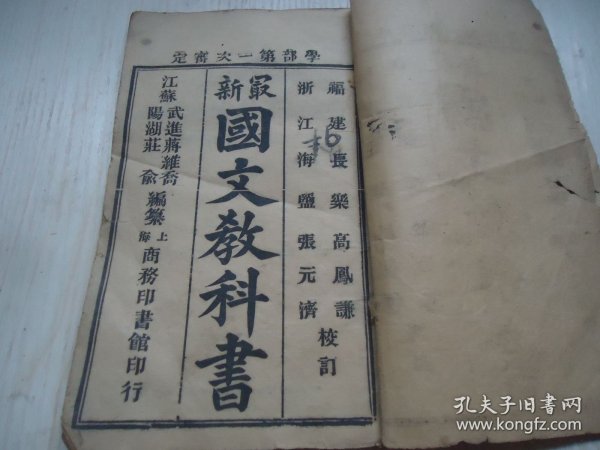 學部第一次審定
福建長樂高鳳謙
浙江海鹽張元濟
校訂
最新
國文教科書
江蘇
武進蔣維喬
陽湖莊俞
編纂
上海
商務印書館印行
孔夫子旧书网
www.kongfz.com